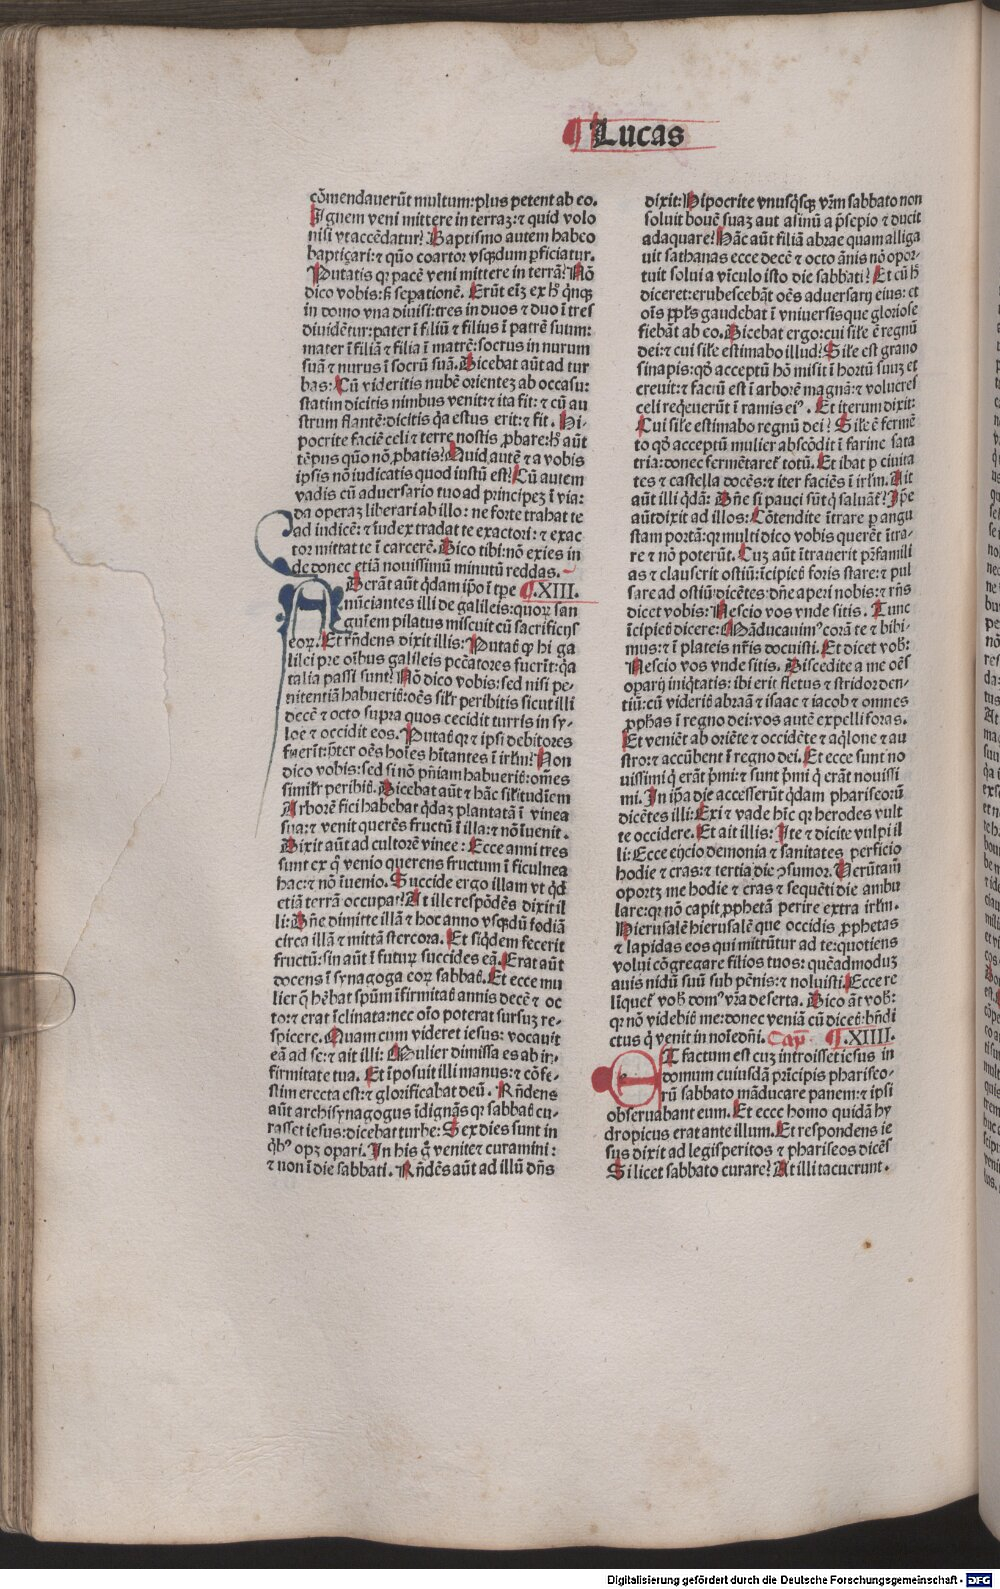 Lucas
cōmendauerūt multum: plus petent ab eo.
Ignem veni mittere in terraz: ⁊ quid volo
nisi vt accēdatur? Baptismo autem habeo
baptiçari: ⁊ quō coartor vsqꝫdum ꝑficiatur.
Putatis qꝛ pacē veni mittere in terrā? Nō
dico vobis: ſꝫ sepationē. Erūt eīz ex hͦ q̄nqꝫ
in domo vna diuisi: tres in duos ⁊ duo ī tres
diuidētur: pater ī filiū ⁊ filius ī patrē suum:
mater ī filiā ⁊ filia ī matrē: socrus in nurum
suā ⁊ nurus ī socrū suā. Dicebat aūt ad tur
bas: Cū videritis nubē orientez ab occasu:
statim dicitis nimbus venit: ⁊ ita fit: ⁊ cū au
strum flantē: dicitis q̄a estus erit: ⁊ fit. Hi-
pocrite faciē celi ⁊ terre nostis ꝓbare: hͦ aūt
tēpus quō nō ꝓbatis? Quid autē ⁊ a vobis
ipsis nō iudicatis quod iustū est? Cū autem
vadis cū aduersario tuo ad principez ī via:
da operaz liberari ab illo: ne forte trahat te
ad iudicē: ⁊ iudex tradat te exactori: ⁊ exac
tor mittat te ī carcerē. Dico tibi: nō exies in
de donec etiā nouissimū minutū reddas.
ADerāt aūt q̄dam ip̄o ī tp̄e ¶.XIII.
nūciantes illi de galileis: quoꝝ san
guiēm pilatus miscuit cū sacrificijs
eoꝝ. Et rn̄dens dixit illis: Putaƀ qꝛ hi ga
lilei pre oībus galileis pcc̄atores fuerīt: q̄a
talia passi sunt? Nō dico vobis: sed nisi pe-
nitentiā habueriƀ: oēs silr̄ peribitis sicut illi
decē ⁊ octo supra quos cecidit turris in sy-
loe ⁊ occidit eos. Putaƀ qꝛ ⁊ ipsi debitores
fuerīt: p̄ter oēs hoīes hītantes ī irl̄m? Non
dico vobis: sed si nō pn̄iam habueriƀ: om̄es
similr̄ peribiƀ. Dicebat aūt ⁊ hāc sil̄itudīem
Arborē fici habebat q̄daz plantatā ī vinea
sua: ⁊ venit querēs fructū ī illa: ⁊ nō īuenit.
Dixit aūt ad cultorē vinee: Ecce anni tres
sunt ex q̄ venio querens fructum ī ficulnea
hac: ⁊ nō īuenio. Succide ergo illam vt qd̄
etiā terrā occupat? At ille respōdēs dixit il
li: Dn̄e dimitte illā ⁊ hoc anno vsqꝫdū fodiā
circa illā ⁊ mittā stercora. Et siq̄dem fecerit
fructū: sin aūt ī futuꝝ succides eā. Erat aūt
docens ī synagoga eoꝝ sabbaƀ. Et ecce mu
lier q̄ hēbat spūm īfirmitaƀ annis decē ⁊ oc
to: ⁊ erat īclinata: nec oīo poterat sursuz re-
spicere. Quam cum videret iesus: vocauit
eā ad se: ⁊ ait illi: Mulier dimissa es ab in-
firmitate tua. Et īposuit illi manus: ⁊ cōfe-
stim erecta est: ⁊ glorificabat deū. Rn̄dens
aūt archisynagogus īdignās qꝛ sabbaƀ cu-
rasset iesus: dicebat turbe: Sex dies sunt in
q̄bꝰ opꝫ opari. In his g̊ venite ⁊ curamini:
⁊ non ī die sabbati. Rn̄dēs aūt ad illū dn̄s
dixit: Hipocrite vnusq̄sqꝫ vr̄m sabbato non
soluit bouē suaz aut asinū a p̄sepio ⁊ ducit
adaquare? Hāc aūt filiā abrae quam alliga
uit sathanas ecce decē ⁊ octo ānis nō opor-
tuit solui a vīculo isto die sabbati? Et cū hͦ
diceret: erubescebāt oēs aduersarij eius: et
oīs ppl̄s gaudebat ī vniuersis que gloriose
fiebāt ab eo. Dicebat ergo: cui sil̄e ē regnū
dei: ⁊ cui sil̄e estimabo illud? Sil̄e est grano
sinapis: qd̄ acceptū hō misit ī hortū suuz et
creuit: ⁊ factū est ī arborē magnā: ⁊ volucres
celi req̄euerūt ī ramis eiꝰ. Et iterum dixit:
Cui sil̄e estimabo regnū dei? Sil̄e ē fermē
to qd̄ acceptū mulier abscōdit ī farine sata
tria: donec fermētaret totū. Et ibat ꝑ ciuita
tes ⁊ castella docēs: ⁊ iter faciēs ī irl̄m. Ait
aūt illi q̄dā: Dn̄e si pauci sūt q̄ saluāt? Ip̄e
aūt dixit ad illos: Cōtendite ītrare ꝑ angu
stam portā: qꝛ multi dico vobis querēt ītra-
re ⁊ nō poterūt. Cuz aūt ītrauerit pr̄famili
as ⁊ clauserit ostiū: īcipieƀ foris stare: ⁊ pul
sare ad ostiū dicētes: dn̄e aperi nobis: ⁊ rn̄s
dicet vobis: Nescio vos vnde sitis. Tunc
īcipieƀ dicere: Māducauimꝰ corā te ⁊ bibi-
mus: ⁊ ī plateis nr̄is docuisti. Et dicet vob̄:
Nescio vos vnde sitis. Discedite a me oēs
oparij iniq̄tatis: ibi erit fletus ⁊ stridor den-
tiū: cū videriƀ abraā ⁊ isaac ⁊ iacob ⁊ omnes
ꝓph̄as ī regno dei: vos autē expelli foras.
Et veniēt ab oriēte ⁊ occidēte ⁊ aq̄lone ⁊ au
stro: ⁊ accūbent ī regno dei. Et ecce sunt no
uissimi q̄ erāt p̄mi: ⁊ sunt p̄mi q̄ erāt nouissi
mi. In ip̄a die accesserūt q̄dam phariseorū
dicētes illi: Exi ⁊ vade hīc qꝛ herodes vult
te occidere. Et ait illis: Ite ⁊ dicite vulpi il
li: Ecce eijcio demonia ⁊ sanitates perficio
hodie ⁊ cras: ⁊ tertia die ꝯsumor. Verūtam̄
oportꝫ me hodie ⁊ cras ⁊ sequēti die ambu
lare: qꝛ nō capit ꝓphetā perire extra irl̄m.
Hierusalē hierusalē que occidis ꝓphetas
⁊ lapidas eos qui mittūtur ad te: quotiens
volui cōgregare filios tuos: quēadmoduz
auis nidū suū sub pēnis: ⁊ noluisti. Ecce re
liquet̄ vob̄ domꝰ vr̄a deserta. Dico āt vob̄:
qꝛ nō videbiƀ me: donec veniā cū diceƀ: bn̄di
ctus q̄ venit in noīe dn̄i. Cap̄. ¶.XIIII.
ET factum est cuz introisset iesus in
domum cuiusdā pr̄icipis phariseo-
rū sabbato māducare panem: ⁊ ipsi
obseruabant eum. Et ecce homo quidā hy
dropicus erat ante illum. Et respondens ie
sus dixit ad legisperitos ⁊ phariseos dicēs
Si licet sabbato curare? At illi tacuerunt.
Digitalisierung gefördert durch die Deutsche Forschungsgemeinschaft - DFG